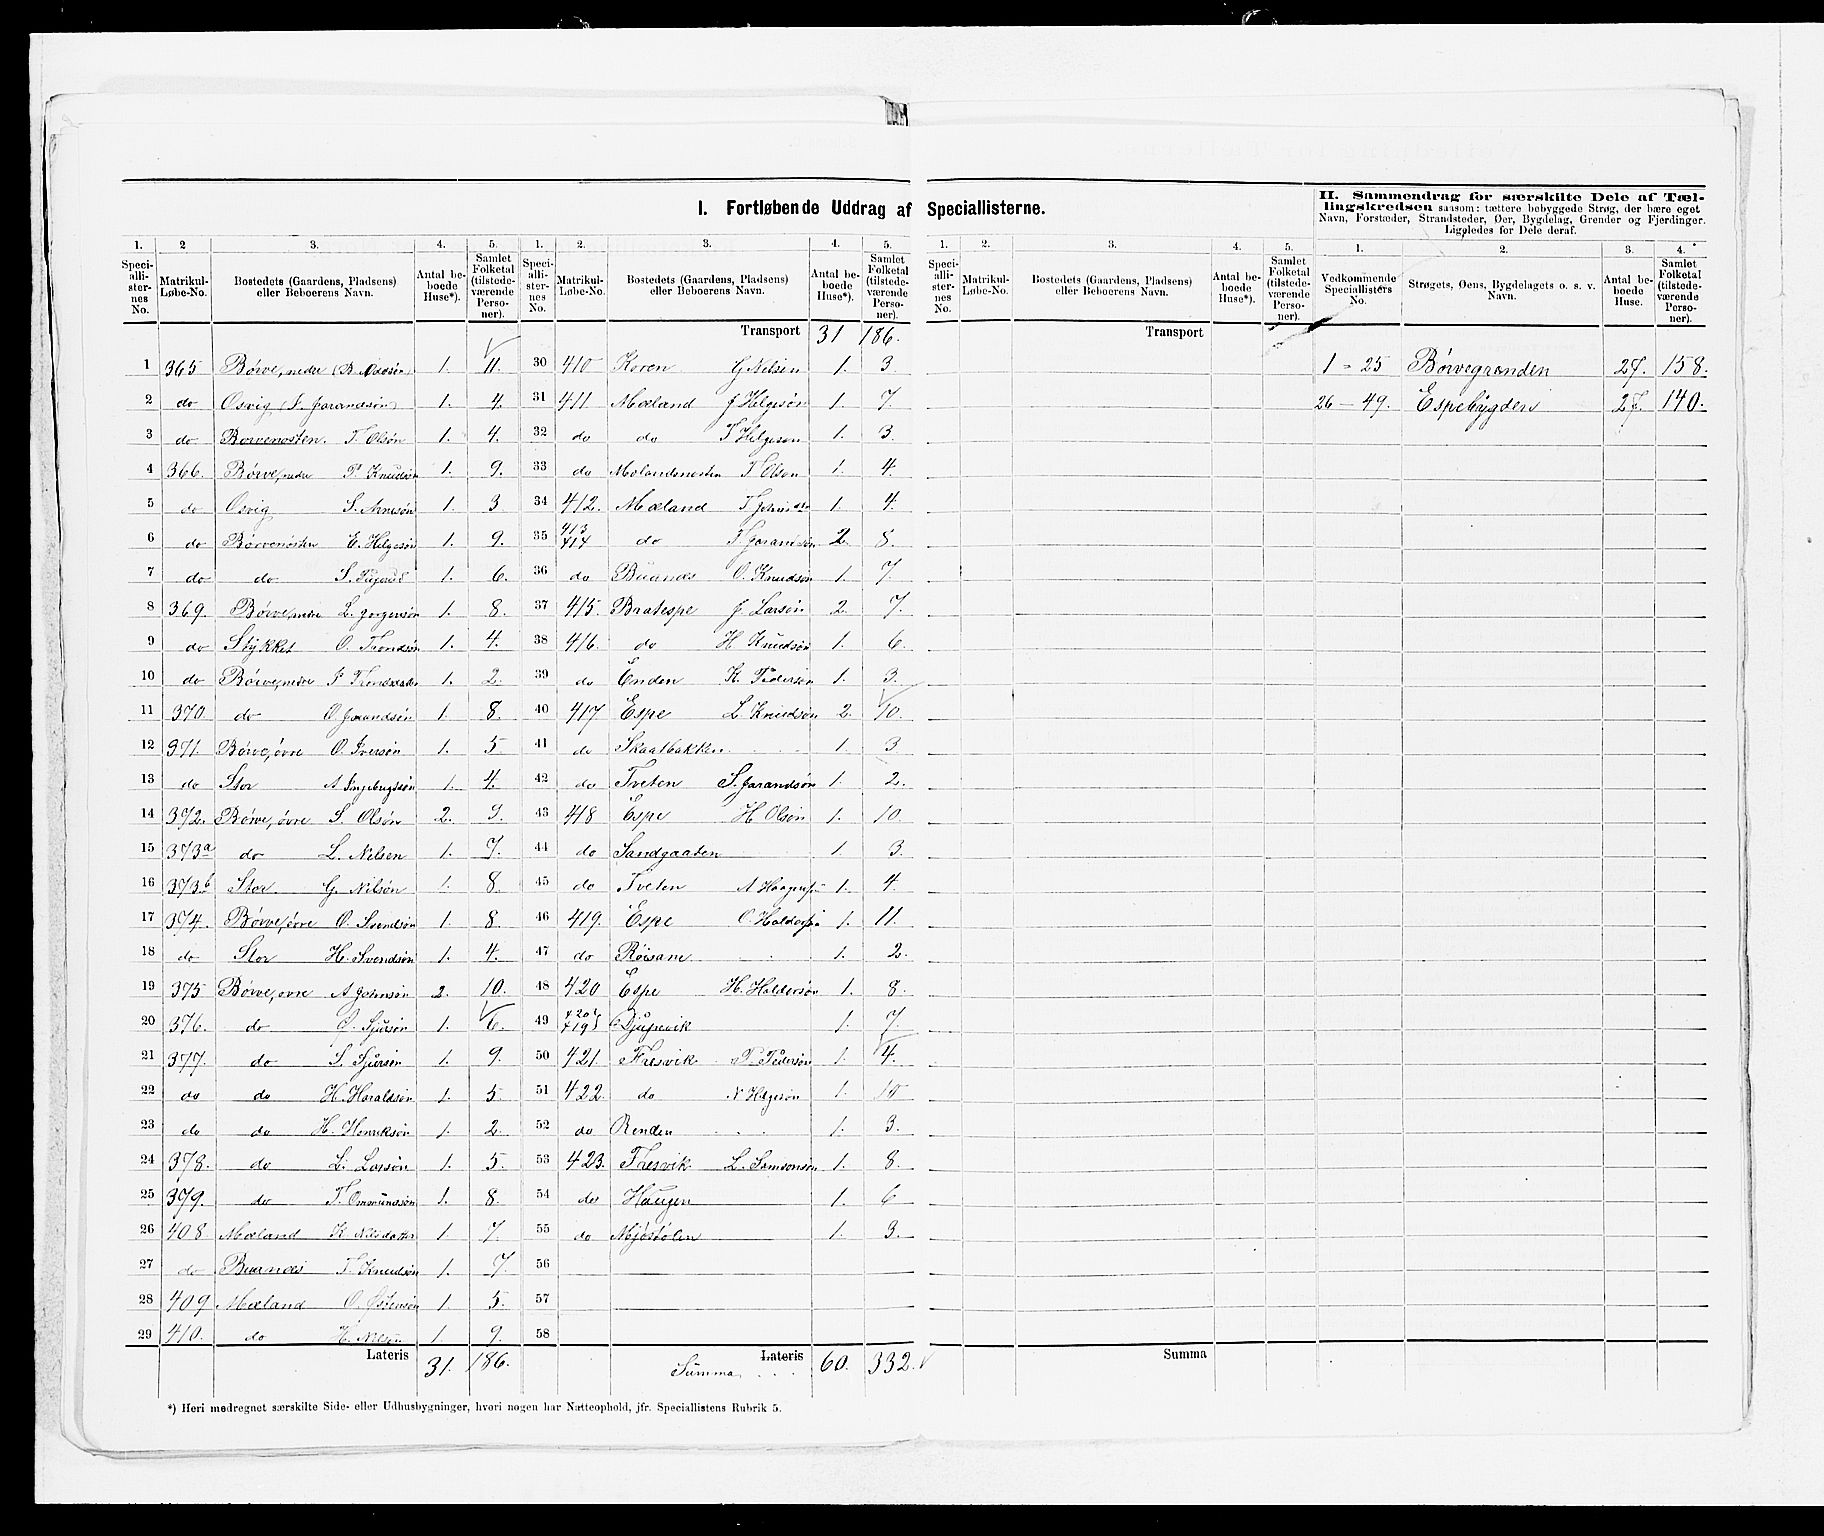 I. Fortløbende Uddrag af Speciallisterne.
II. Sammendrag for særskilte Dele af Tællingskredsen saasom: tættere bebyggede Strøg, der bære eget
Navn, Forstæder, Strandsteder, Øer, Bygdelag, Grender og Fjerdinger.
Ligeledes for Dele deraf.
1. 2 3. 4. 5. 1. 2. 3. 4. 5. 1. 2. 3. 4. 5. 1. 2. 3. 4.
Speciallisternes No. Matrikul-Løbe-No. Bostedets (Gaardens, Pladsens) eller Beboerens Navn. Antal beboede Huse*). Samlet Folketal (tilstedeværende Personer).
Speciallisternes No. Matrikul-Løbe-No. Bostedets (Gaardens, Pladsens) eller Beboerens Navn. Antal beboede Huse*). Samlet Folketal (tilstedeværende Personer).
Speciallisternes No. Matrikul-Løbe-No. Bostedets (Gaardens, Pladsens) eller Beboerens Navn. Antal beboede Huse*). Samlet Folketal (tilstedeværende Personer).
Vedkommende Speciallisters No. Strøgets, Øens, Bygdelagets o. s. v. Navn. Antal beboede Huse. Samlet Folketal (tilstedeværende Personer).
1 365 Børve, nedre 1. 11.
2 do Osvig (S. Jorandsøn) 1. 4.
3 do Børvenosten. T. Olsøn 1. 4.
4 366. Børve, nedre P. Knudsøn 1. 9.
5 do Osvig S. Arnesøn 1. 3
6 do Børvenosten E. Helgesøn 1. 9.
7 do do S. 1. 6.
8 369. Børve, nedre L. Jørgensøn 1. 8.
9 do Stykket O. Trondsøn 1. 4.
10 do Børve, nedre 1. 2.
11 370 do O. Jorandsøn 1. 8.
12 371. Børve, øvre O. Iversøn 1. 5
13 do Stor A Ingebrigtsøn 1. 4.
14 372. Børve, øvre S. Olsøn 2. 9.
15 373a do L. Nilsen 1. 7.
16 373b Stor G. Nilsøn 1. 8.
17 374. Børve, øvre O. Svendsøn 1. 8.
18 do Stor H. Svendsøn 1. 4.
19 375 Børve, øvre A Johnsøn 2. 10.
20 376. do O. Sjursøn 1. 6.
21 377. do S. Sjursøn 1. 9.
22 do do H. Haraldsøn 1. 5
23 do do H. Henriksøn 1. 2.
24 378. do L. Larsøn 1. 5.
25 379. do T. Omundsøn 1. 8.
26 408. Mæland K Nilsdatter 1. 7.
27 do Buarnæs T. Knudsøn 1. 7.
28 409 Mæland O. Østensøn 1. 5.
29 410. do H. Nilsøn 1. 9.
Lateris 31. 186.
Transport 31 186.
30 410 Koren G Nilsen 1. 3
31 411 Mæland J Helgesøn 1. 7.
32 do do T Helgeson 1. 3.
33 do Mølandsnosten T Olson 1. 4.
34 412. Mæland T 1. 4.
35 413 414 do T Jorandsøn 2. 8.
36 do Buarnæs O. Knudsøn 1. 7.
37 415. Bratespe J. Larsøn 2. 7.
38 416. do H Knudsøn 1. 6.
39 do Enden K. Pedersøn 1. 3.
40 417 Espe L. Knudsøn 2. 10.
41 do Skaatbakken 1. 3
42 do Tveten S. Jorandsøn 1. 2.
43 418 Espe H Olsøn 1. 10.
44 do Sandgaaten 1. 3.
45 do Tveten A 1. 4.
46 419. Espe O. 1. 11.
47 do Røisane 1. 2.
48 420 Espe H. Haldorsøn 1. 8.
49 420 419 Djupevik 1. 7.
50 421. Fresvik P. Pedersøn 1. 4.
51 422. do N Helgesøn 1. 10
52 do Renden 1. 3.
53 423. Fresvik L. Samsonsøn 1. 8.
54 do Haugen 1. 6
55 do Mjøstølen 1. 3.
56
57
58
Lateris
Summa 60. 332.
Transport
Summa
1 - 25 Børvegrenden 27. 158.
26 - 49. Espebygden 27. 140.
*) Heri medregnet særskilte Side- eller Udhusbygninger, hvori nogen har Natteophold, jfr. Speciallistens Rubrik 5.